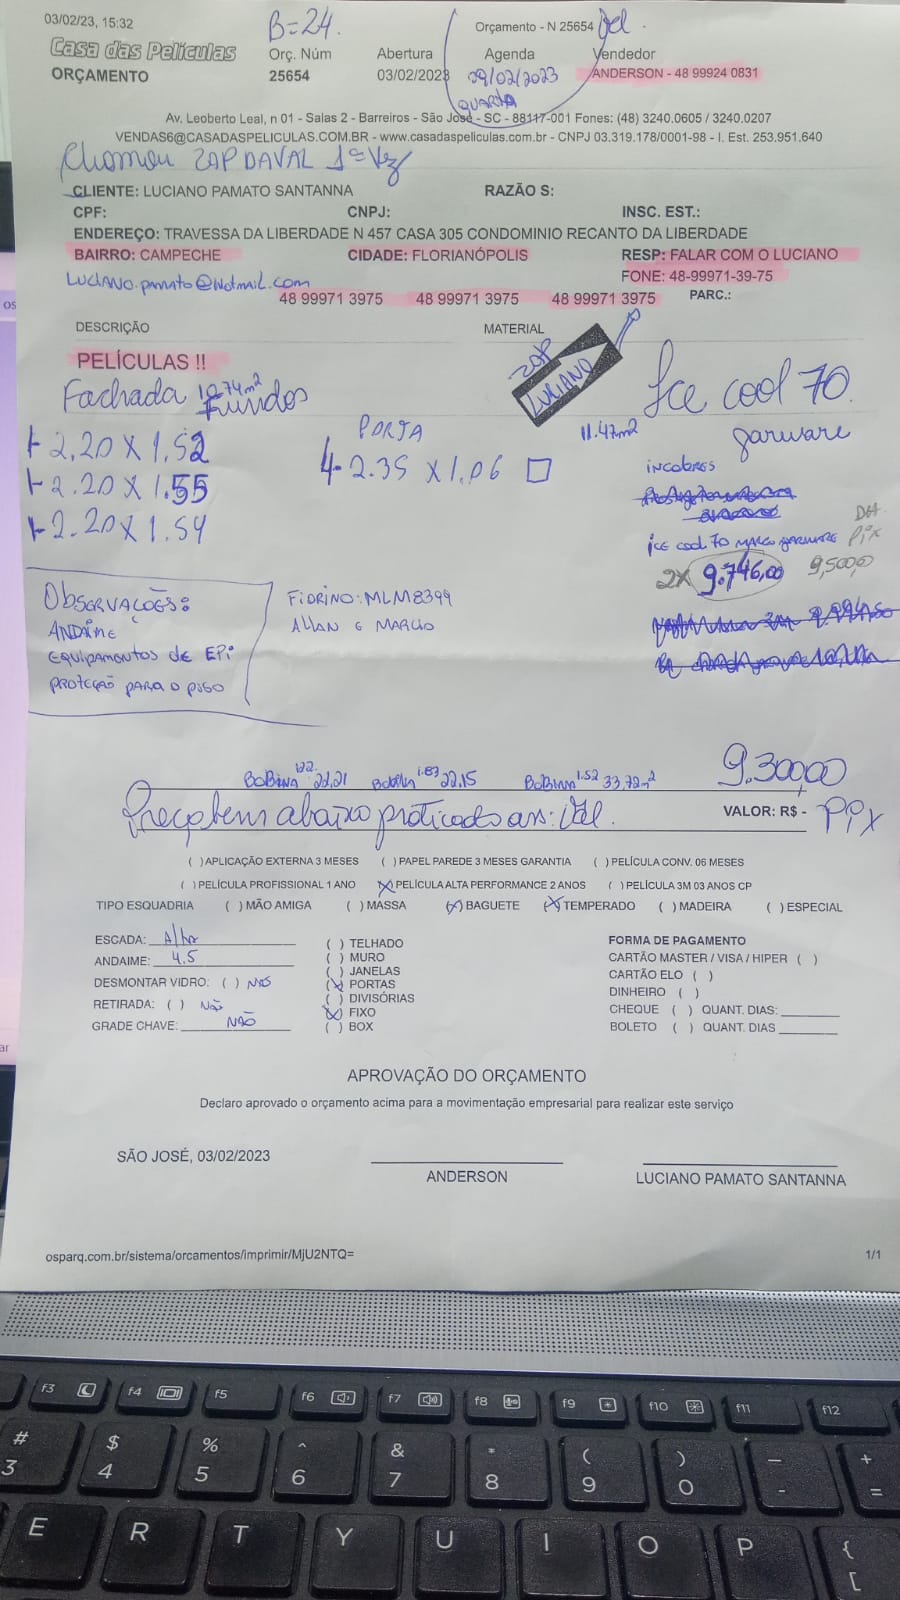 03/02/23, 15:32
B=24.
Orçamento - N 25654
Casa das Películas
Orç. Núm
Abertura
Agenda
Vendedor
ORÇAMENTO
25654
03/02/2023
09/02/2023
ANDERSON - 48 99924 0831
QUARTA
Av. Leoberto Leal, n 01 - Salas 2 - Barreiros - São José - SC - 88117-001 Fones: (48) 3240.0605 / 3240.0207
VENDAS6@CASADASPELICULAS.COM.BR - www.casadaspeliculas.com.br - CNPJ 03.319.178/0001-98 - I. Est. 253.951.640
Chamou ZAP DAVAL 1ª Vez
CLIENTE: LUCIANO PAMATO SANTANNA
RAZÃO S:
CPF:
CNPJ:
INSC. EST.:
ENDEREÇO: TRAVESSA DA LIBERDADE N 457 CASA 305 CONDOMINIO RECANTO DA LIBERDADE
BAIRRO: CAMPECHE
CIDADE: FLORIANÓPOLIS
RESP: FALAR COM O LUCIANO
FONE: 48-99971-39-75
Luciano.pamato@hotmail.com
48 99971 3975 48 99971 3975 48 99971 3975
PARC.:
DESCRIÇÃO
MATERIAL
PELÍCULAS !!
ZAP
LUCIANO
Fachada Fundos
10.74m²
Ice cool 70.
garware
1-2,20 X 1.52
PORTA
11.47m²
4-2.35 X 1.06
1-2.20 X 1.55
1-2.20 X 1.54
incolores
ice cool 70 marca garware
Pix
2X 9.746,00
9,500,00
Observações:
ANDAIME
equipamentos de EPi
proteção para o piso
Fiorino: MLM8399
Allan e Marcio
BoBina 1.22 22,21
BoBina 1.83 22,15
BoBina 1.52 33,72m²
9.300,00
Preço bem abaixo praticado ass: Val.
VALOR: R$ -
Pix
( ) APLICAÇÃO EXTERNA 3 MESES ( ) PAPEL PAREDE 3 MESES GARANTIA ( ) PELÍCULA CONV. 06 MESES
( ) PELÍCULA PROFISSIONAL 1 ANO (X) PELÍCULA ALTA PERFORMANCE 2 ANOS ( ) PELÍCULA 3M 03 ANOS CP
TIPO ESQUADRIA ( ) MÃO AMIGA ( ) MASSA (X) BAGUETE (X) TEMPERADO ( ) MADEIRA ( ) ESPECIAL
ESCADA: Alta
ANDAIME: 4.5
DESMONTAR VIDRO: ( ) NÃO
RETIRADA: ( ) Não
GRADE CHAVE: NÃO
( ) TELHADO
( ) MURO
( ) JANELAS
(X) PORTAS
( ) DIVISÓRIAS
(X) FIXO
( ) BOX
FORMA DE PAGAMENTO
CARTÃO MASTER / VISA / HIPER ( )
CARTÃO ELO ( )
DINHEIRO ( )
CHEQUE ( ) QUANT. DIAS:
BOLETO ( ) QUANT. DIAS
APROVAÇÃO DO ORÇAMENTO
Declaro aprovado o orçamento acima para a movimentação empresarial para realizar este serviço
SÃO JOSÉ, 03/02/2023
ANDERSON
LUCIANO PAMATO SANTANNA
osparq.com.br/sistema/orcamentos/imprimir/MjU2NTQ=
1/1
f3 f4 f5 f6 f7 f8 f9 f10 f11 f12
# $ % ^ & * ( ) _ +
3 4 5 6 7 8 9 0 - =
E R T Y U I O P { [